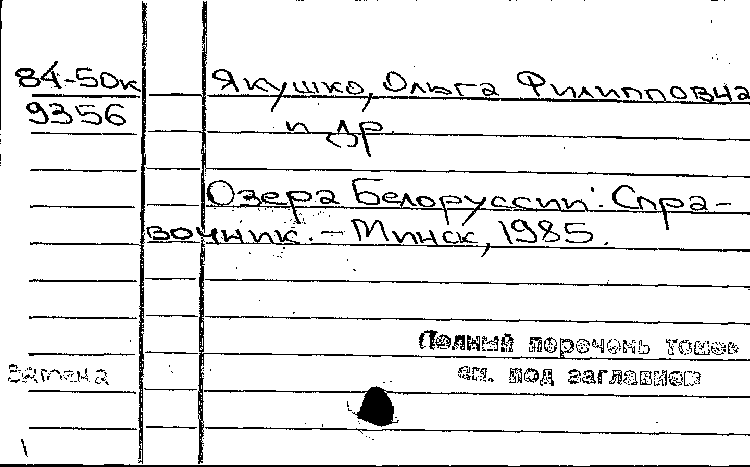 84-50к Якушко, Ольга Филипповна
9356
и др.
Озера Белоруссии: Спра-
вочник. – Минск, 1985.
Полный перечень томов
см. под заглавием
Замена